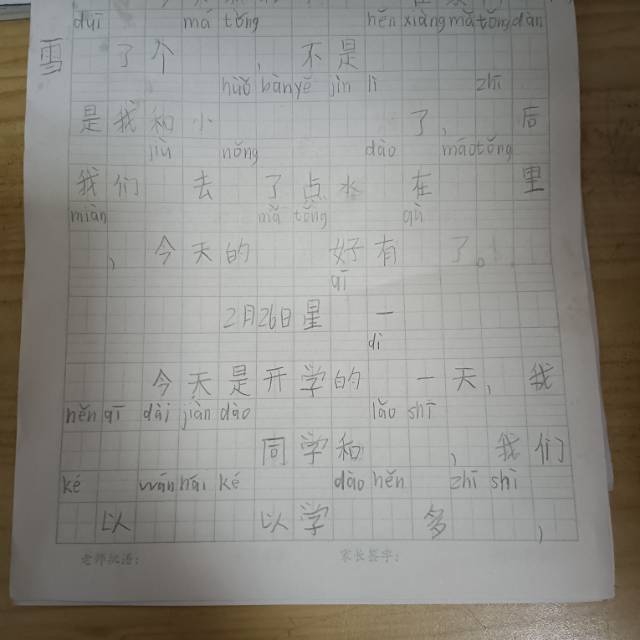 duī mǎ tǒng hěn xiǎng mǎ tǒng dàn
雪 了个 ，不是
huǒ bàn yě jìn lì zhī
是我和小 了，后
jiù nòng dào mǎo tǒng
我们 去 了点水 在 里
miàn mǎ tǒng qù
，今天的 好有 了。
qī
2月26日星 一
dì
今天是开学的 一天，我
hěn qī dài jiàn dào lǎo shī
同学和 ，我们
ké wán hái ké dào hěn zhī shì
以 以学 多 ，
老师批语： 家长签字：